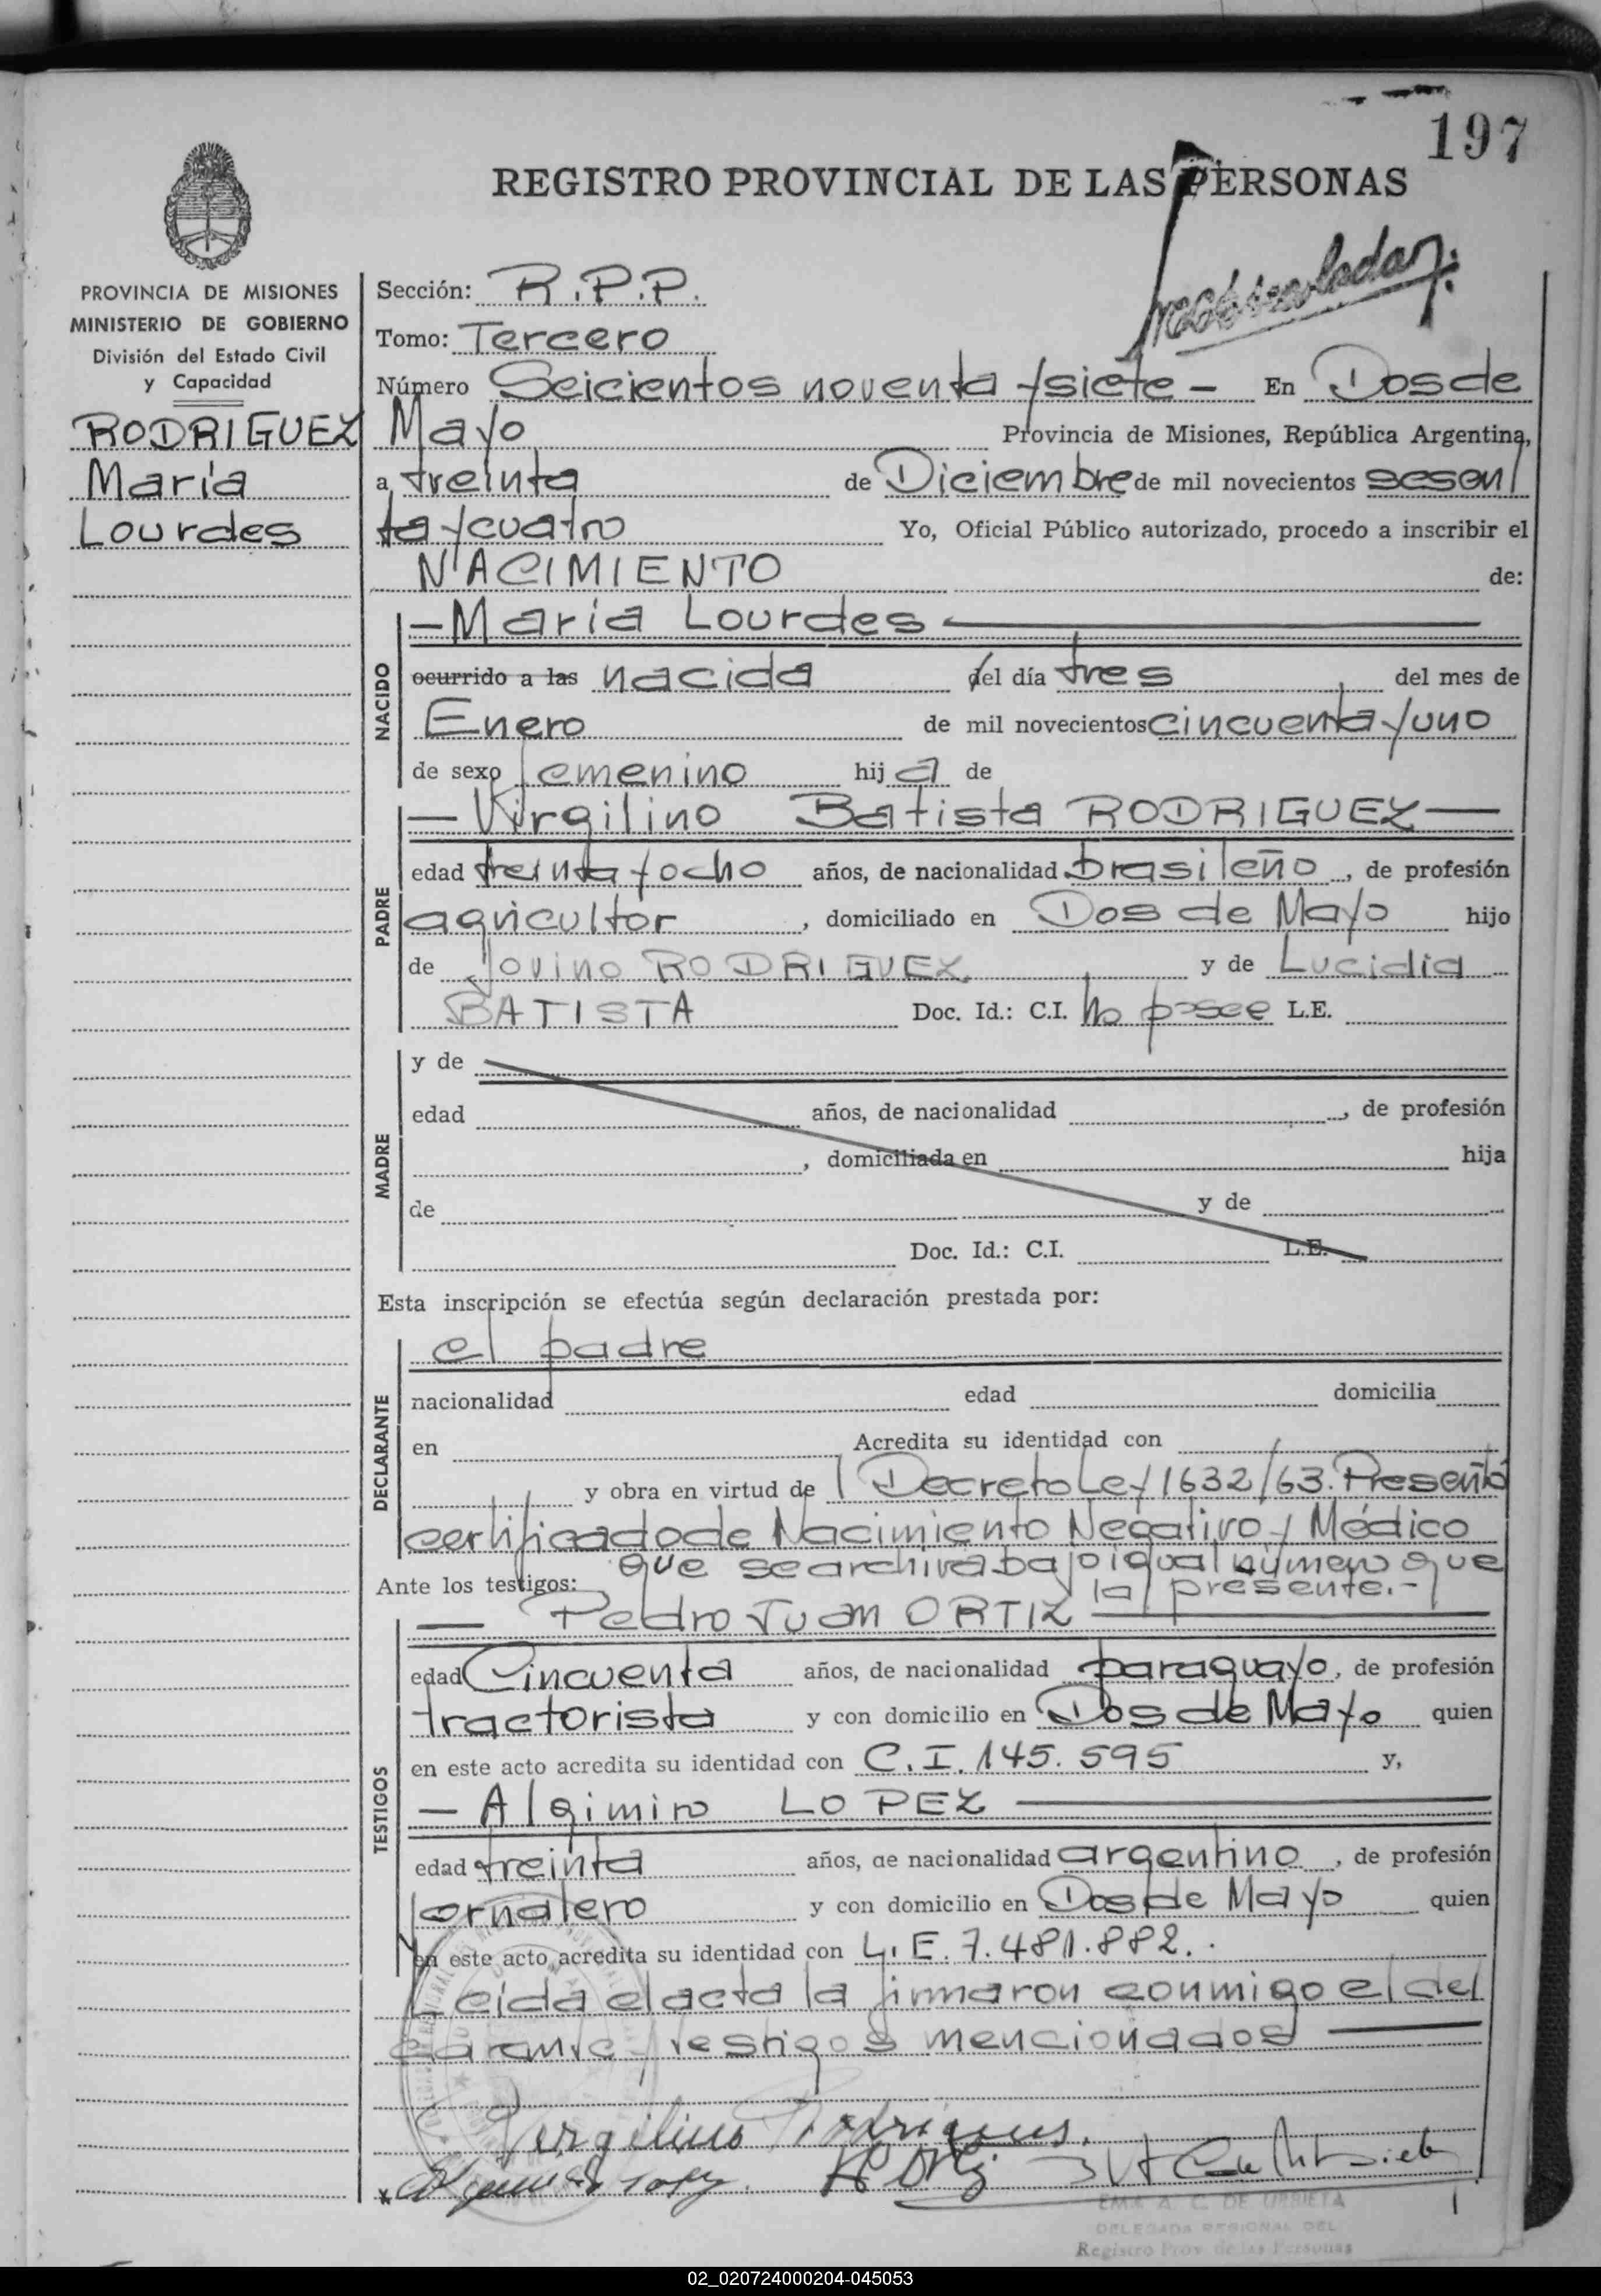 197
REGISTRO PROVINCIAL DE LAS PERSONAS
PROVINCIA DE MISIONES
MINISTERIO DE GOBIERNO
División del Estado Civil
y Capacidad
RODRIGUEZ
María
Lourdes
Sección: R.P.P.
Tomo: Tercero
Número Seicientos noventa y siete - En Dos de
Mayo Provincia de Misiones, República Argentina,
a treinta de Diciembre de mil novecientos sesen
ta y cuatro Yo, Oficial Público autorizado, procedo a inscribir el
NACIMIENTO de:
NACIDO
- María Lourdes
ocurrido a las nacida del día tres del mes de
Enero de mil novecientos cincuenta y uno
de sexo femenino hij a de
PADRE
- Virgilino Batista RODRIGUEZ -
edad treinta y ocho años, de nacionalidad brasileño, de profesión
agricultor, domiciliado en Dos de Mayo hijo
de Jovino RODRIGUEZ y de Lucidia
BATISTA Doc. Id.: C.I. No posee L.E.
MADRE
y de
edad años, de nacionalidad , de profesión
, domiciliada en hija
de y de
Doc. Id.: C.I. L.E.
Esta inscripción se efectúa según declaración prestada por:
DECLARANTE
el padre
nacionalidad edad domicilia
en Acredita su identidad con
y obra en virtud de Decreto Ley 1632/63. Presentó
certificado de Nacimiento Negativo y Médico
que se archiva bajo igual número que
Ante los testigos: la presente.-
TESTIGOS
- Pedro Juan ORTIZ
edad Cincuenta años, de nacionalidad paraguayo, de profesión
tractorista y con domicilio en Dos de Mayo quien
en este acto acredita su identidad con C.I. 145.595 y,
- Algimiro LOPEZ
edad treinta años, de nacionalidad argentino, de profesión
Jornalero y con domicilio en Dos de Mayo quien
en este acto acredita su identidad con L.E. 7.481.882.
Leida el acta la firmaron conmigo el del
clarante y testigos mencionados
EMA A. C. DE URRIETA
DELEGADA REGIONAL DEL
Registro Prov. de las Personas
02_020724000204-045053